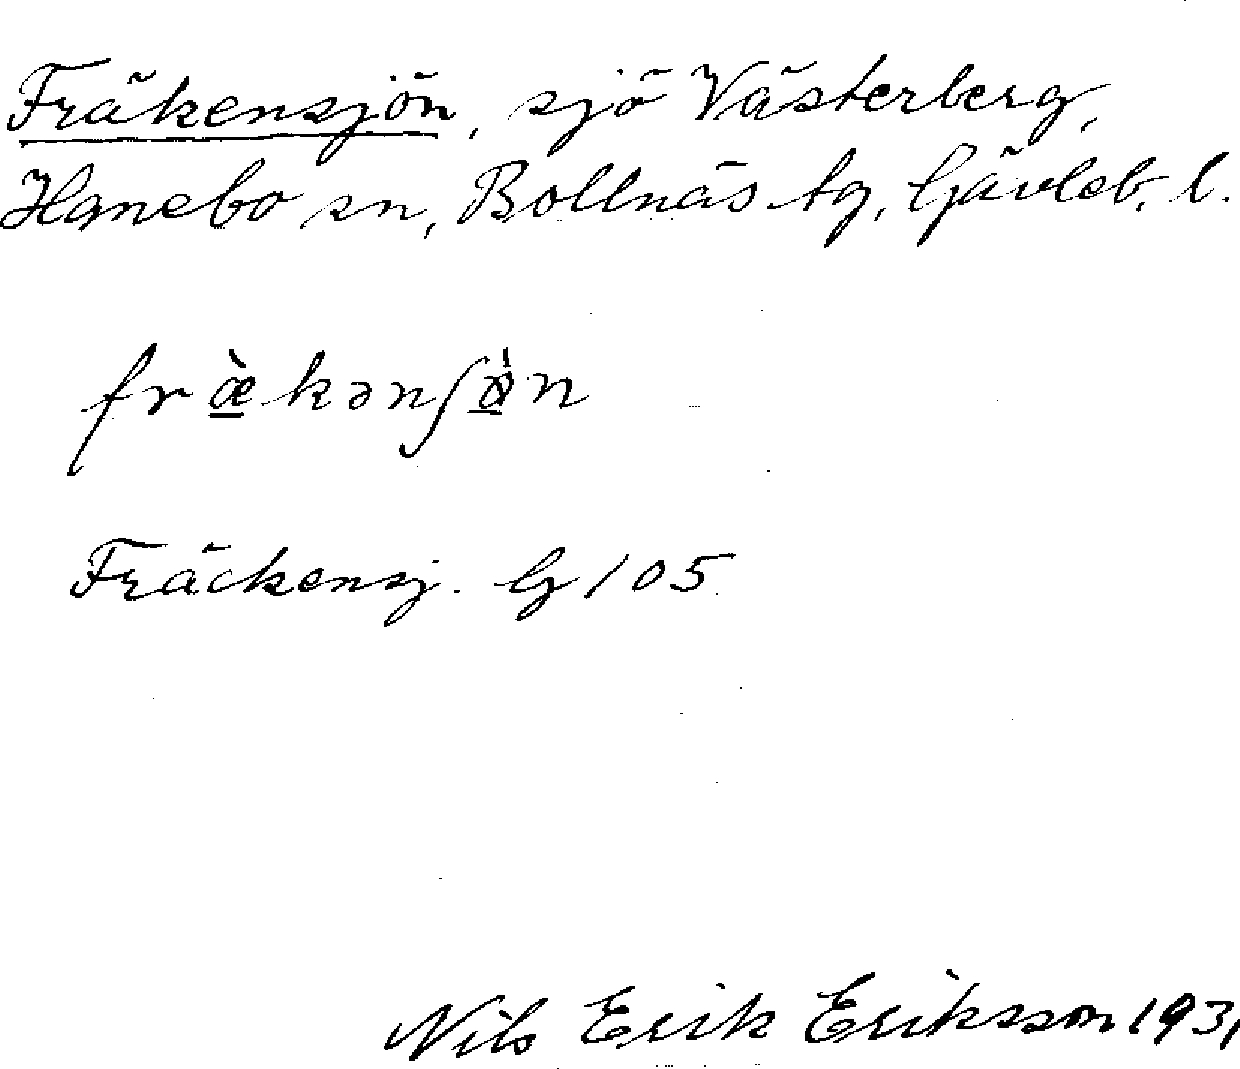 Fräkensjön, sjö Västerberg,
Hanebo sn, Bollnäs tg, Gävleb. l.
fræ̀kənʃø̀n
Fräckensj. G 105
Nils Erik Eriksson 1931